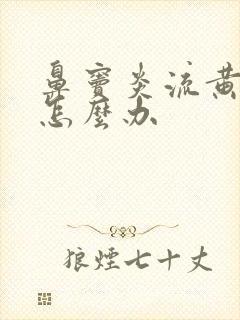 鼻竇炎流黃
怎麼办
狼煙七十丈